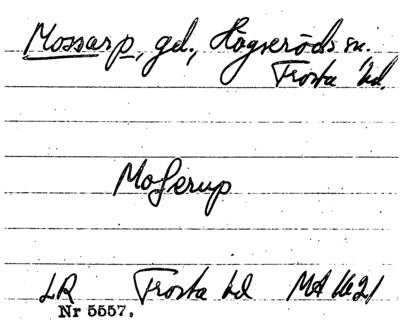 Mossarp, gd., Högseröds sn.
Frosta hd.
Moserup
LR Frosta hd MA 1621
Nr 5557.